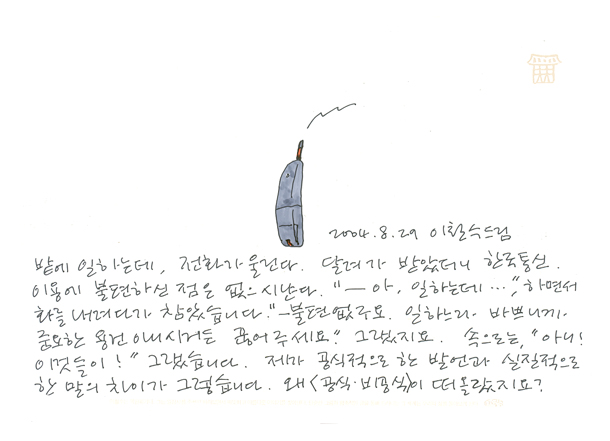 2004.8.29 이철수드림
밭에 일하는데, 전화가 울린다. 달려가 받았더니 한국통신.
이용에 불편하신 점은 없으시난다. "― 아, 일하는데…," 하면서
화를 내려다가 참았습니다. "―불편없구요. 일하느라 바쁘니까
중요한 용건 아니시거든 끊어주세요." 그랬지요. 속으로는, "아니!
이것들이!" 그랬습니다. 제가 공식적으로 한 발언과 실질적으로
한 말의 차이가 그렇습니다. 왜 <공식·비공식>이 떠올랐지요?